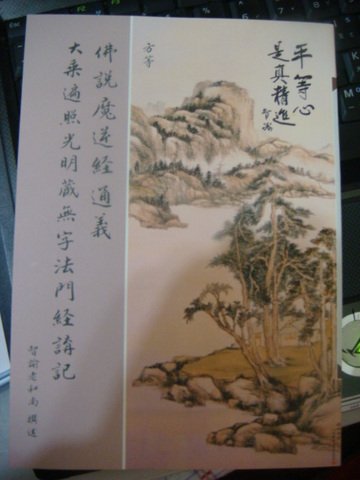 平等心
是真精進
智諭
方等
佛說魔逆経通義
大乘遍照光明藏無字法門経講記
智諭老和尚 撰述